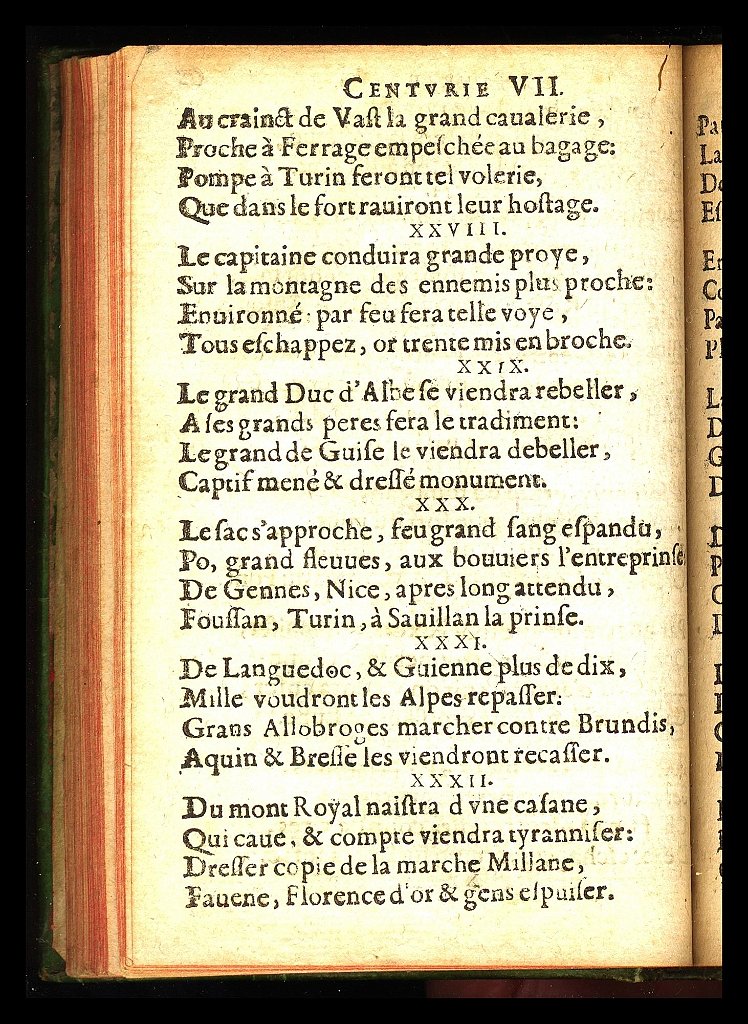 CENTVRIE VII.
Au crainct de Vaſt la grand caualerie,
Proche à Ferrage empeſchée au bagage:
Pompe à Turin feront tel volerie,
Que dans le fort rauiront leur hoſtage.
XXVIII.
Le capitaine conduira grande proye,
Sur la montagne des ennemis plus proche:
Enuironné par feu fera telle voye,
Tous eſchappez, or trente mis en broche.
XXIX.
Le grand Duc d'Albe ſe viendra rebeller,
A ſes grands peres fera le tradiment:
Le grand de Guiſe le viendra debeller,
Captif mené & dreſſé monument.
XXX.
Le ſac s'approche, feu grand ſang eſpandu,
Po, grand fleuues, aux bouuiers l'entreprinſe
De Gennes, Nice, apres long attendu,
Fouſſan, Turin, à Sauillan la prinſe.
XXXI.
De Languedoc, & Guienne plus de dix,
Mille voudront les Alpes repaſſer:
Grans Allobroges marcher contre Brundis,
Aquin & Breſſe les viendront recaſſer.
XXXII.
Du mont Royal naiſtra d vne caſane,
Qui caue, & compte viendra tyranniſer:
Dreſſer copie de la marche Millane,
Fauene, Florence d'or & gens eſpuiſer.